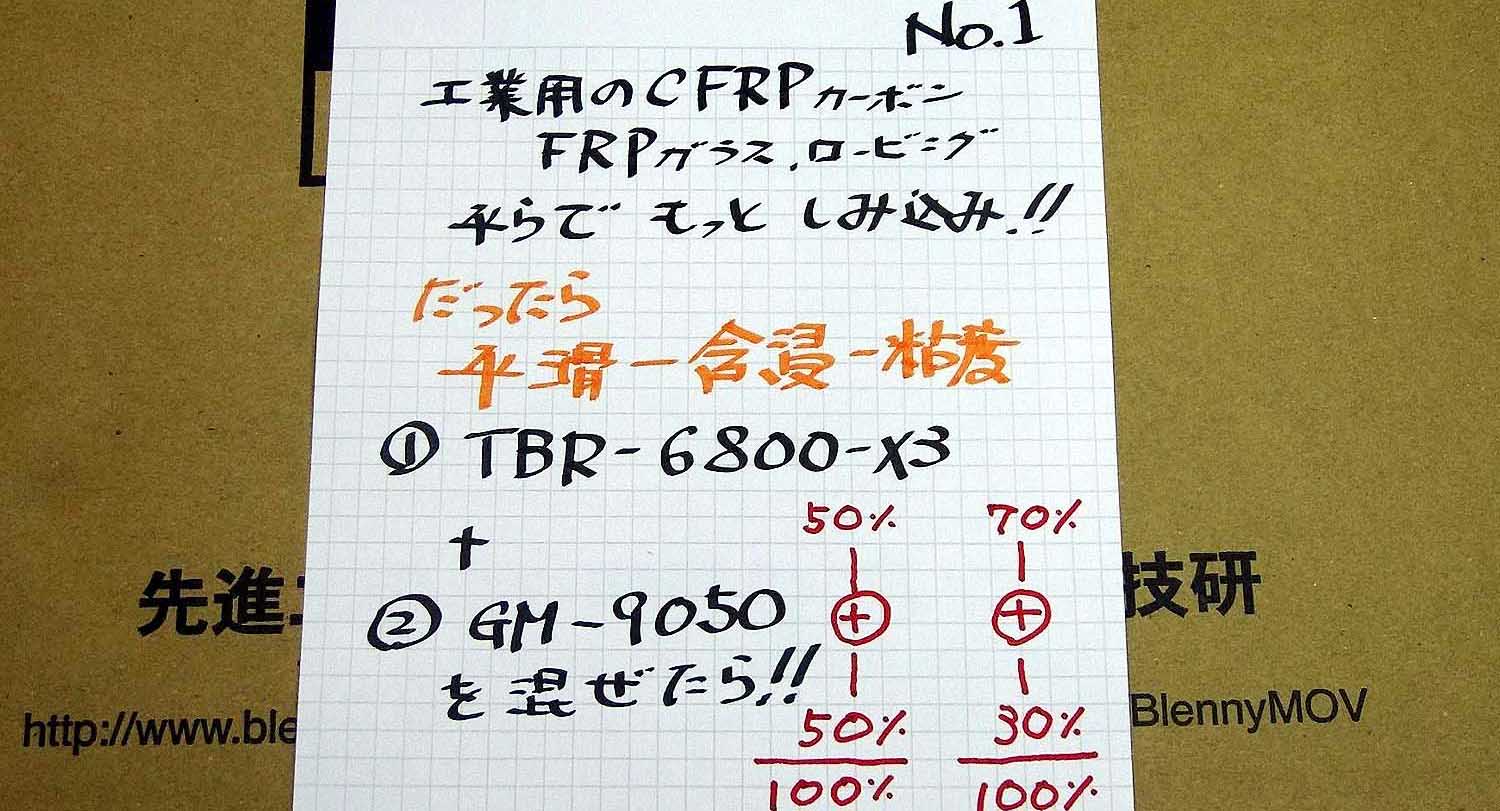 No.1
工業用のCFRPカーボン
FRPガラス、ロービング
平らで もっと しみ込み!!
だったら
平滑-含浸-粘度
① TBR-6800-X3
+
② GM-9050
を混ぜたら!!
50% 70%
+ +
50% 30%
100% 100%
先進 技研
http://www.ble BlennyMOV